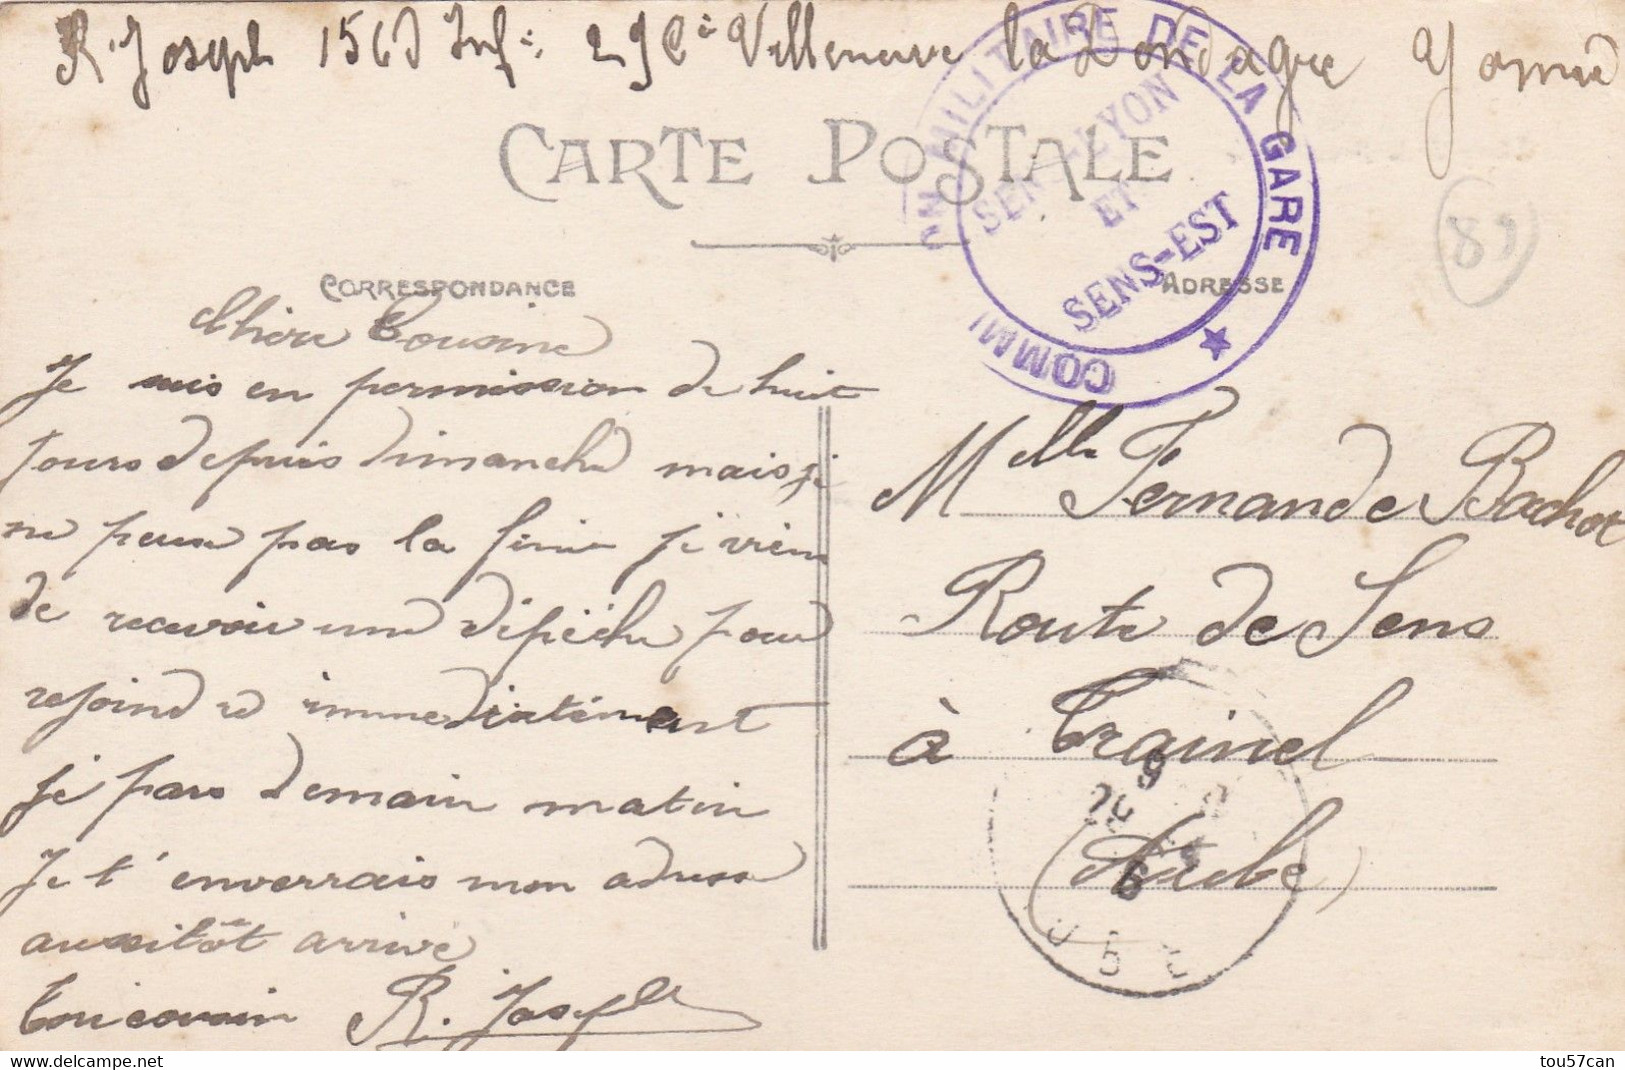 R. Joseph 156e Infie 29 Cie Villeneuve la Dondagre Yonne
CARTE POSTALE
COMMON MILITAIRE DE LA GARE
SENS-LYON
ET
SENS-EST
89
CORRESPONDANCE
ADRESSE
Chère Cousine
Je suis en permission de huit
jours depuis dimanche mais je
ne peux pas la finir je viens
de recevoir une dépêche pour
rejoindre immediatement
je pars demain matin
Je t'enverrais mon adresse
aussitôt arrivé
Ton cousin R. Joseph
Melle Fernande Bachot
Route de Sens
à Trainel
(Aube)
AUBE
Delcampe.net
tou57can